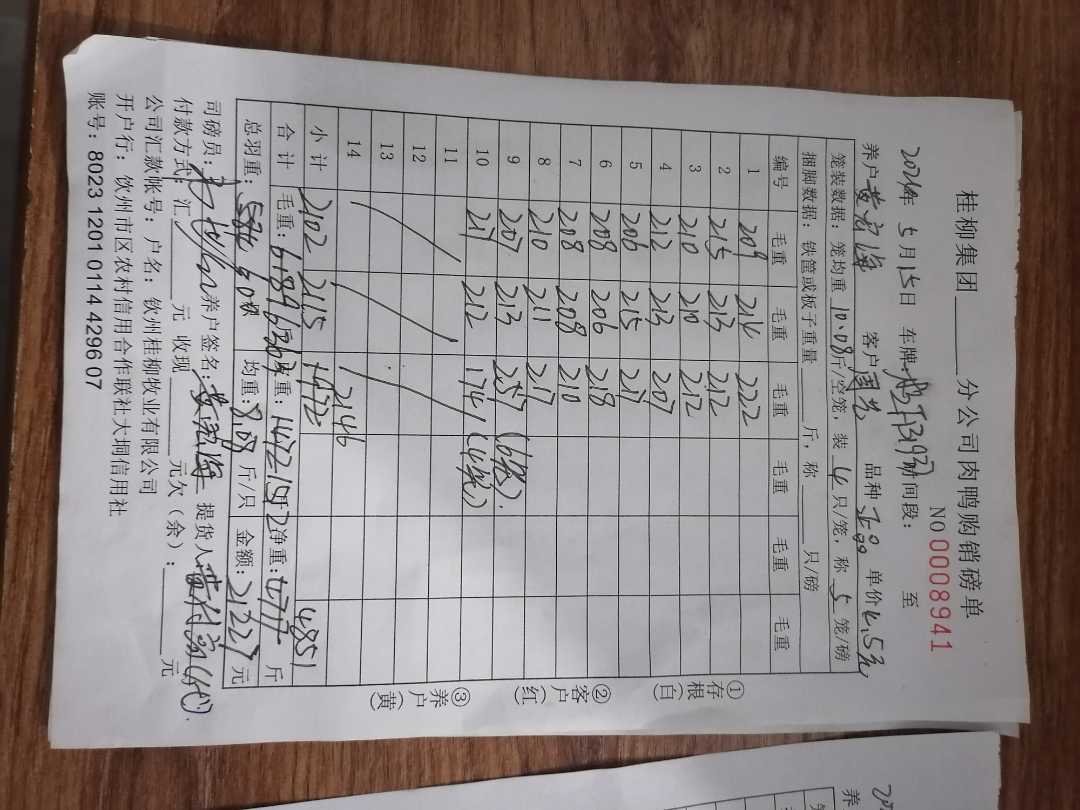 桂柳集团 分公司肉鸭购销磅单
NO 00008941
年 5月15日 车牌: 时间段: 至
养户 黄宏海 客户 周 品种 正品 单价4.5元
笼装数据:笼均重 10.08斤/空笼,装 4 只/笼,称 5 笼/磅
捆脚数据:铁筐或板子重量 斤,称 只/磅
编号 毛重 毛重 毛重 毛重 毛重 毛重
1 209 214 222
2 215 213 212
3 210 210 212
4 212 213 207
5 206 215 211
6 208 206 218
7 208 208 210
8 210 211 217
9 207 213 257 (6笼)
10 217 212 174 (4笼)
11
12
13
14 2146
小计 2102 2115 1972 4851
合计 毛重: 重: 净重: 斤
总羽重: 584 均重: 8.08 斤/只 金额: 21227 元
司磅员: 养户签名: 黄宏海 提货人: (代).
付款方式:汇 元 收现 元欠(余): 元
公司汇款账号:户名:钦州桂柳牧业有限公司
开户行:钦州市区农村信用合作联社大垌信用社
账号:8023 1201 0114 4296 07
①存根(白)
②客户(红)
③养户(黄)
养